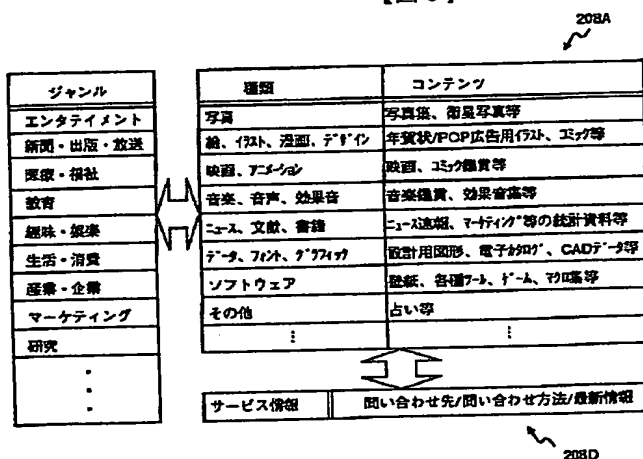 208A
ジャンル
エンタテイメント
新聞・出版・放送
医療・福祉
教育
趣味・娯楽
生活・消費
産業・企業
マーケティング
研究
種類 コンテンツ
写真 写真集、衛星写真等
絵、イラスト、漫画、デザイン 年賀状/POP広告用イラスト、コミック等
映画、アニメーション 映画、コミック鑑賞等
音楽、音声、効果音 音楽鑑賞、効果音集等
ニュース、文献、書籍 ニュース速報、マーケティング等の統計資料等
データ、フォント、グラフィック 設計用図形、電子カタログ、CADデータ等
ソフトウェア 壁紙、各種ツール、ゲーム、マクロ集等
その他 占い等
サービス情報 問い合わせ先/問い合わせ方法/最新情報
208D